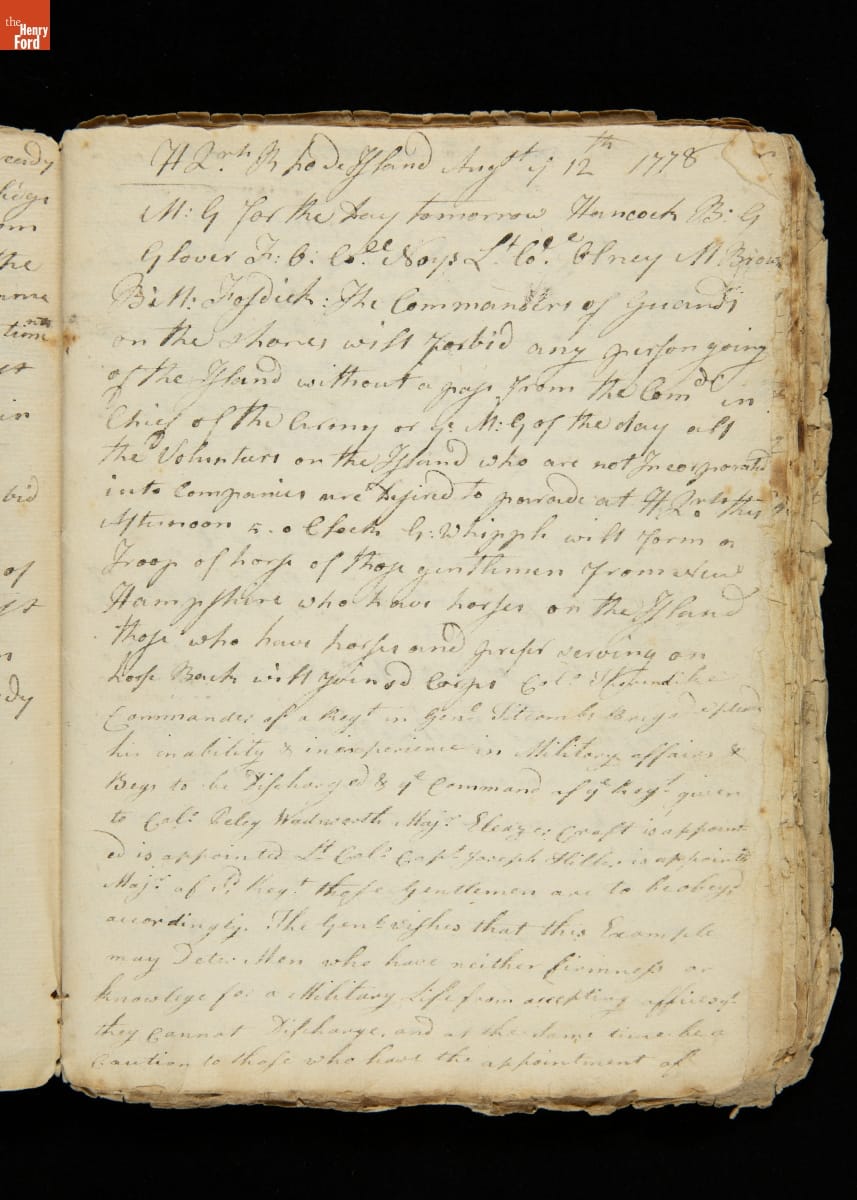 the Henry Ford
H Qrs Rhode Island Augst ye 12th 1778
M: G for the Day tomorrow Hancock B: G
Glover F: O: Cole Noys Lt Cole Olney M Brow
B: M: Fosdick: The Commanders of Guards
on the shores will forbid any person going
of the Island without a pass from the Comdr in
Chief of the Army or ye M: G of the day all
the Volunters on the Island who are not Incorporated
into Companies are Desired to parade at H Qrs this
Afternoon 5. o Clock G: Whipple will form a
Troop of horse of those gentlemen from New
Hampshire who have horses on the Island
those who have horses and prefer serving on
horse Back will join sd Corps Coll Thorndike
Commander of a Regt in Genl Titcombs Brigd
his inability & inexperience in Military affairs &
Begs to be Discharged & ye Command of ye Regt given
to Coll Peleg Wadsworth Majr Eleazer Craft is appoint
ed is appointed Lt Coll Capt Joseph Hiller is appointed
Majr of sd Regt those Gentlemen are to be obeyd
accordingly. The Genl wishes that this Example
may Deter Men who have neither firmness or
knowlege for a Military Life from accepting offices yt
they cannot Discharge, and at the same time be a
Caution to those who have the appointment of
eady
om
the
time
in
bid
of